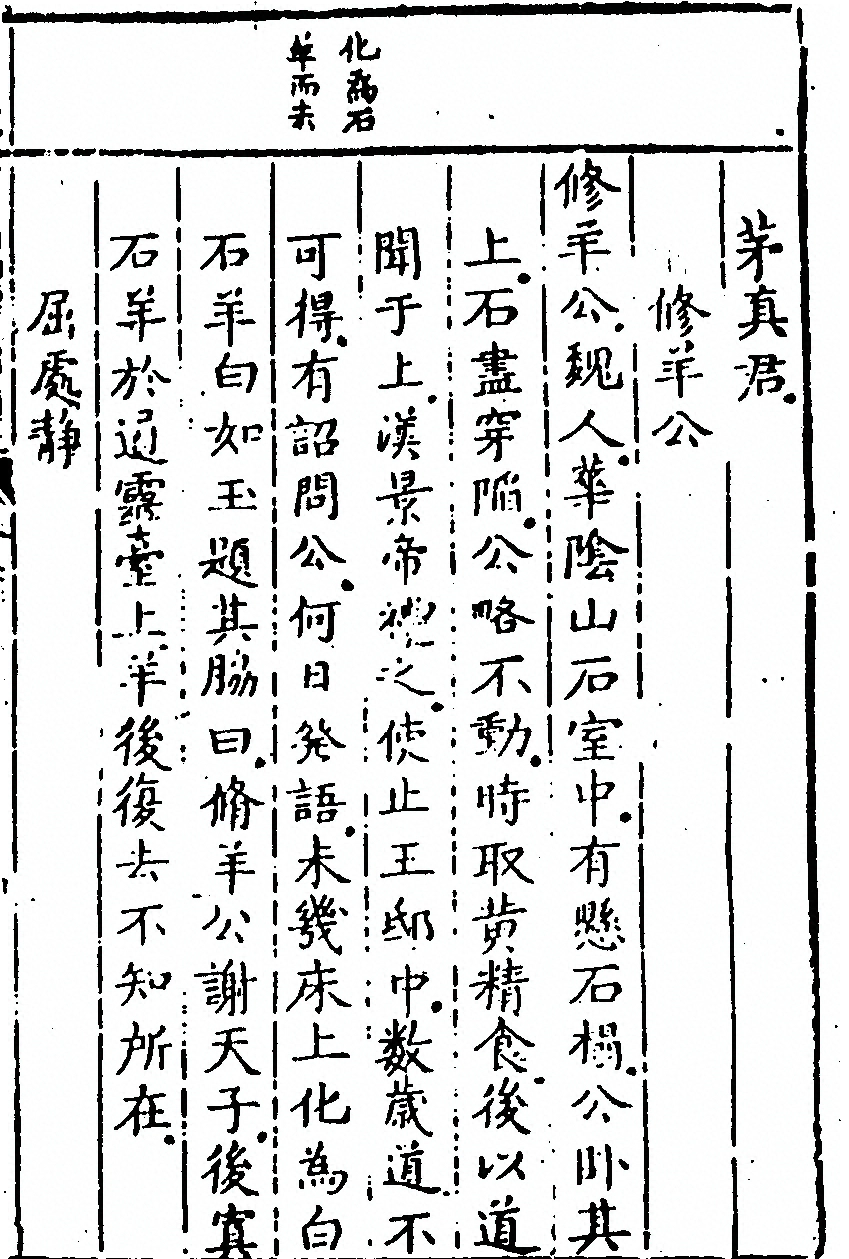 化為石
羊而去
茅真君
修羊公
修羊公魏人華陰山石室中有懸石榻公卧其
上石盡穿陷公略不動時取黄精食後以道
聞于上漢景帝禮之使止王邸中数歲道不
可得有詔問公何日発語未幾床上化為白
石羊白如玉題其脇曰脩羊公謝天子後寘
石羊於通靈臺上羊後復去不知所在
屈處靜